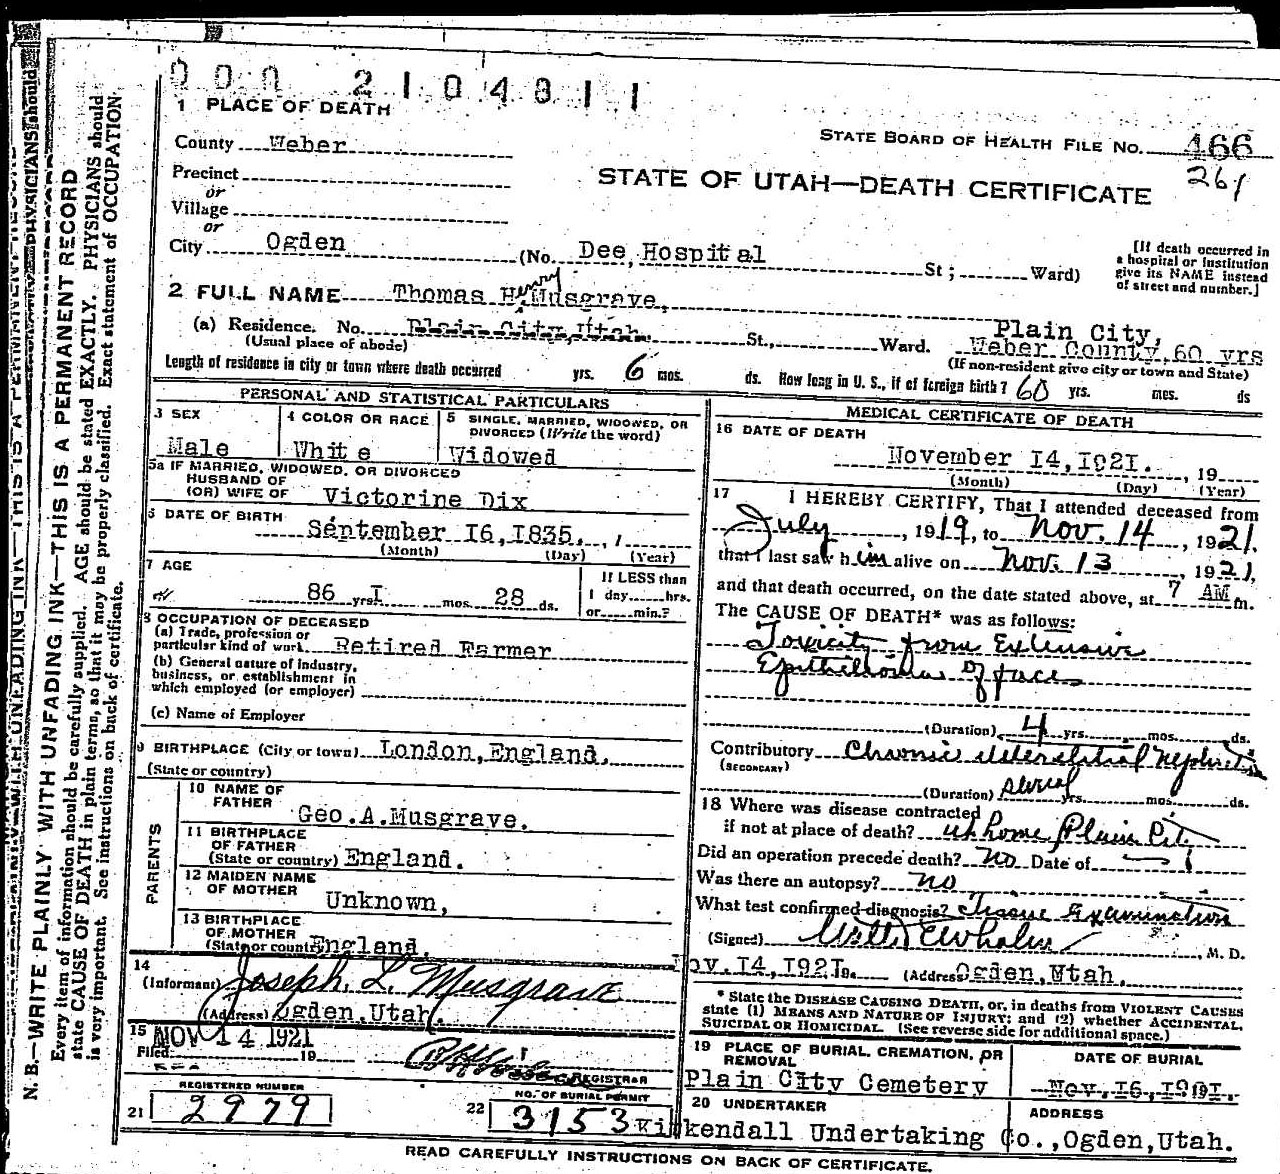 000 2104811
1 PLACE OF DEATH
STATE BOARD OF HEALTH FILE NO. 466
County Weber
261
Precinct
STATE OF UTAH—DEATH CERTIFICATE
or
Village
or
City Ogden (No. Dee Hospital St; Ward)
[If death occurred in
a hospital or institution
give its NAME instead
of street and number.]
2 FULL NAME Thomas Henry Musgrave,
(a) Residence. No. Plain City, Utah. St., Ward. Plain City,
Weber County, 60 yrs
(Usual place of abode)
(If non-resident give city or town and State)
Length of residence in city or town where death occurred yrs. 6 mos. ds. How long in U. S., if of foreign birth? 60 yrs. mos. ds
PERSONAL AND STATISTICAL PARTICULARS
3 SEX
Male
4 COLOR OR RACE
White
5 SINGLE, MARRIED, WIDOWED, OR
DIVORCED (Write the word)
Widowed
5a IF MARRIED, WIDOWED, OR DIVORCED
HUSBAND OF
(OR) WIFE OF Victorine Dix
6 DATE OF BIRTH
September I6,I835.
(Month) (Day) (Year)
7 AGE
86 yrs I mos. 28 ds.
If LESS than
1 day hrs.
or min.?
8 OCCUPATION OF DECEASED
(a) Trade, profession or
particular kind of work Retired Farmer
(b) General nature of industry,
business, or establishment in
which employed (or employer)
(c) Name of Employer
9 BIRTHPLACE (City or town) London, England.
(State or country)
PARENTS
10 NAME OF
FATHER
Geo.A.Musgrave.
11 BIRTHPLACE
OF FATHER
(State or country) England.
12 MAIDEN NAME
OF MOTHER
Unknown,
13 BIRTHPLACE
OF MOTHER
(State or country) England.
14
(Informant) Joseph. L. Musgrave
(Address) Ogden, Utah.
15 NOV 14 1921
Filed 19
REGISTRAR
REGISTERED NUMBER
21 2979
NO. OF BURIAL PERMIT
22 3153
MEDICAL CERTIFICATE OF DEATH
16 DATE OF DEATH
November I4,I92I. , 19
(Month) (Day) (Year)
17 I HEREBY CERTIFY, That I attended deceased from
July , 1919, to Nov. 14 , 1921.
that I last saw him alive on Nov. 13 , 1921,
and that death occurred, on the date stated above, at 7 AM m.
The CAUSE OF DEATH* was as follows:
Toxicity from Extensive
Epithelioma of face
(Duration) 4 yrs. mos. ds.
Contributory Chronic interstitial Nephritis
(SECONDARY)
(Duration) several yrs. mos. ds.
18 Where was disease contracted
if not at place of death? at home, Plain City
Did an operation precede death? No Date of
Was there an autopsy? No
What test confirmed diagnosis? Tissue Examination
(Signed) M. D.
ov.I4,I92I. (Address Ogden, Utah.
* State the DISEASE CAUSING DEATH, or, in deaths from VIOLENT CAUSES
state (1) MEANS AND NATURE OF INJURY; and (2) whether ACCIDENTAL,
SUICIDAL OR HOMICIDAL. (See reverse side for additional space.)
19 PLACE OF BURIAL, CREMATION, OR
REMOVAL
Plain City Cemetery
DATE OF BURIAL
Nov. I6, I92I.
20 UNDERTAKER
ADDRESS
Kirkendall Undertaking Co., Ogden, Utah.
READ CAREFULLY INSTRUCTIONS ON BACK OF CERTIFICATE.
N. B.—WRITE PLAINLY WITH UNFADING INK—THIS IS A PERMANENT RECORD
Every item of information should be carefully supplied. AGE should be stated EXACTLY. PHYSICIANS should
state CAUSE OF DEATH in plain terms, so that it may be properly classified. Exact statement of OCCUPATION
is very important. See instructions on back of certificate.